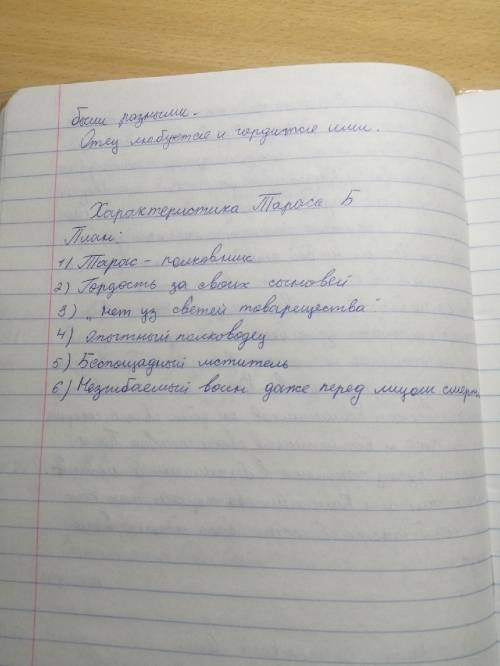 были разными.
Отец любуется и гордится ими.
Характеристика Тараса Б
План:
1) Тарас - полковник
2) Гордость за своих сыновей
3) „нет уз святей товарищества"
4) Опытный полководец
5) Беспощадный мститель
6) Незгибаемый воин даже перед лицом смерти